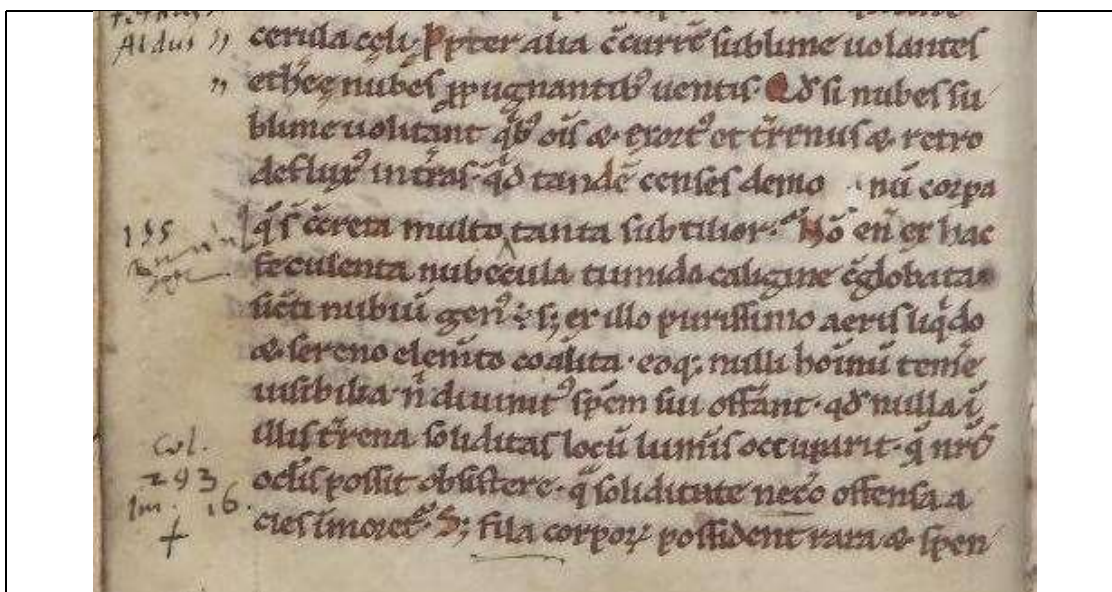 Aldus
cerula cęli. Ppter alia c̄currē sublime uolantes
etheę nubes ꝓpugnantib; uentis. Qd̛ si nubes su
blime uolitant qb; oīs & exort᾽ et t̄renus & retro
deflux᾽ in t̄ras. qd̛ tandē censes demo nū corpa
155
q̄ s̄ c̄creta multo tanta subtilior. Nō en̄ ex hac
feculenta nubecula tumida caligine c̄globata
sicti nubiū gen᾽ ÷ s; ex illo purissimo aeris liqdo
& sereno elem̄to coalita. eoq; nulli hoīnū tem̄e
uisibilia. n̄ diuinit᾽ spēm sui offānt. qd̛ nulla ī
illis t̄rena soliditas locū lumīs occuparit. q̄ nr̄is
Col.
293
oclis possit obsistere. q̄ soliditate nec̄o offensa a
Im. 16.
+
cies īmoret᾽. S; fila corpoꝝ possident rara & splen